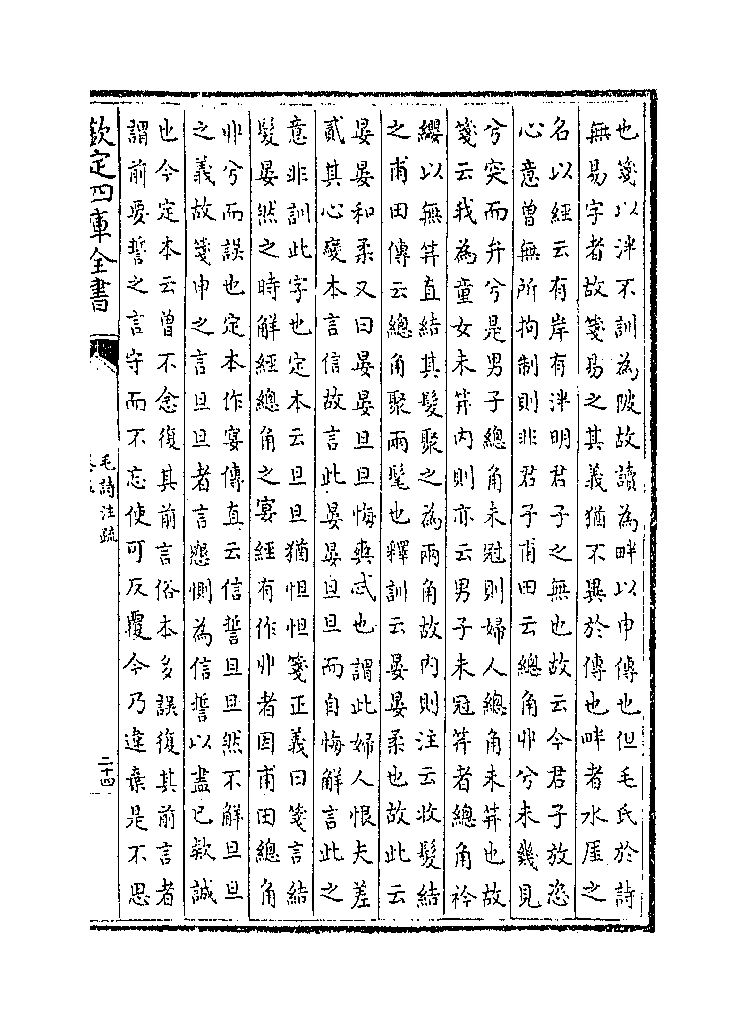 也箋以泮不訓為陂故讀為畔以申傳也但毛氏於詩
無易字者故箋易之其義猶不異於傳也畔者水厓之
名以經云有岸有泮明君子之無也故云今君子放恣
心意曾無所拘制則非君子甫田云總角丱兮未幾見
兮突而弁兮是男子總角未冠則婦人總角未笄也故
箋云我為童女未笄内則亦云男子未冠笄者總角衿
纓以無笄直結其髮聚之為兩角故内則注云收髮結
之甫田傳云總角聚兩髦也釋訓云晏晏柔也故此云
晏晏和柔又曰晏晏旦旦悔爽忒也謂此婦人恨夫差
貳其心變本言信故言此晏晏旦旦而自悔解言此之
意非訓此字也定本云旦旦猶怛怛箋正義曰箋言結
髮晏然之時解經總角之宴經有作丱者因甫田總角
丱兮而誤也定本作宴傳直云信誓旦旦然不解旦旦
之義故箋申之言旦旦者言懇惻為信誓以盡己欵誠
也今定本云曾不念復其前言俗本多誤復其前言者
謂前要誓之言守而不忘使可反覆今乃違棄是不思
欽定四庫全書
毛詩注疏
二十四